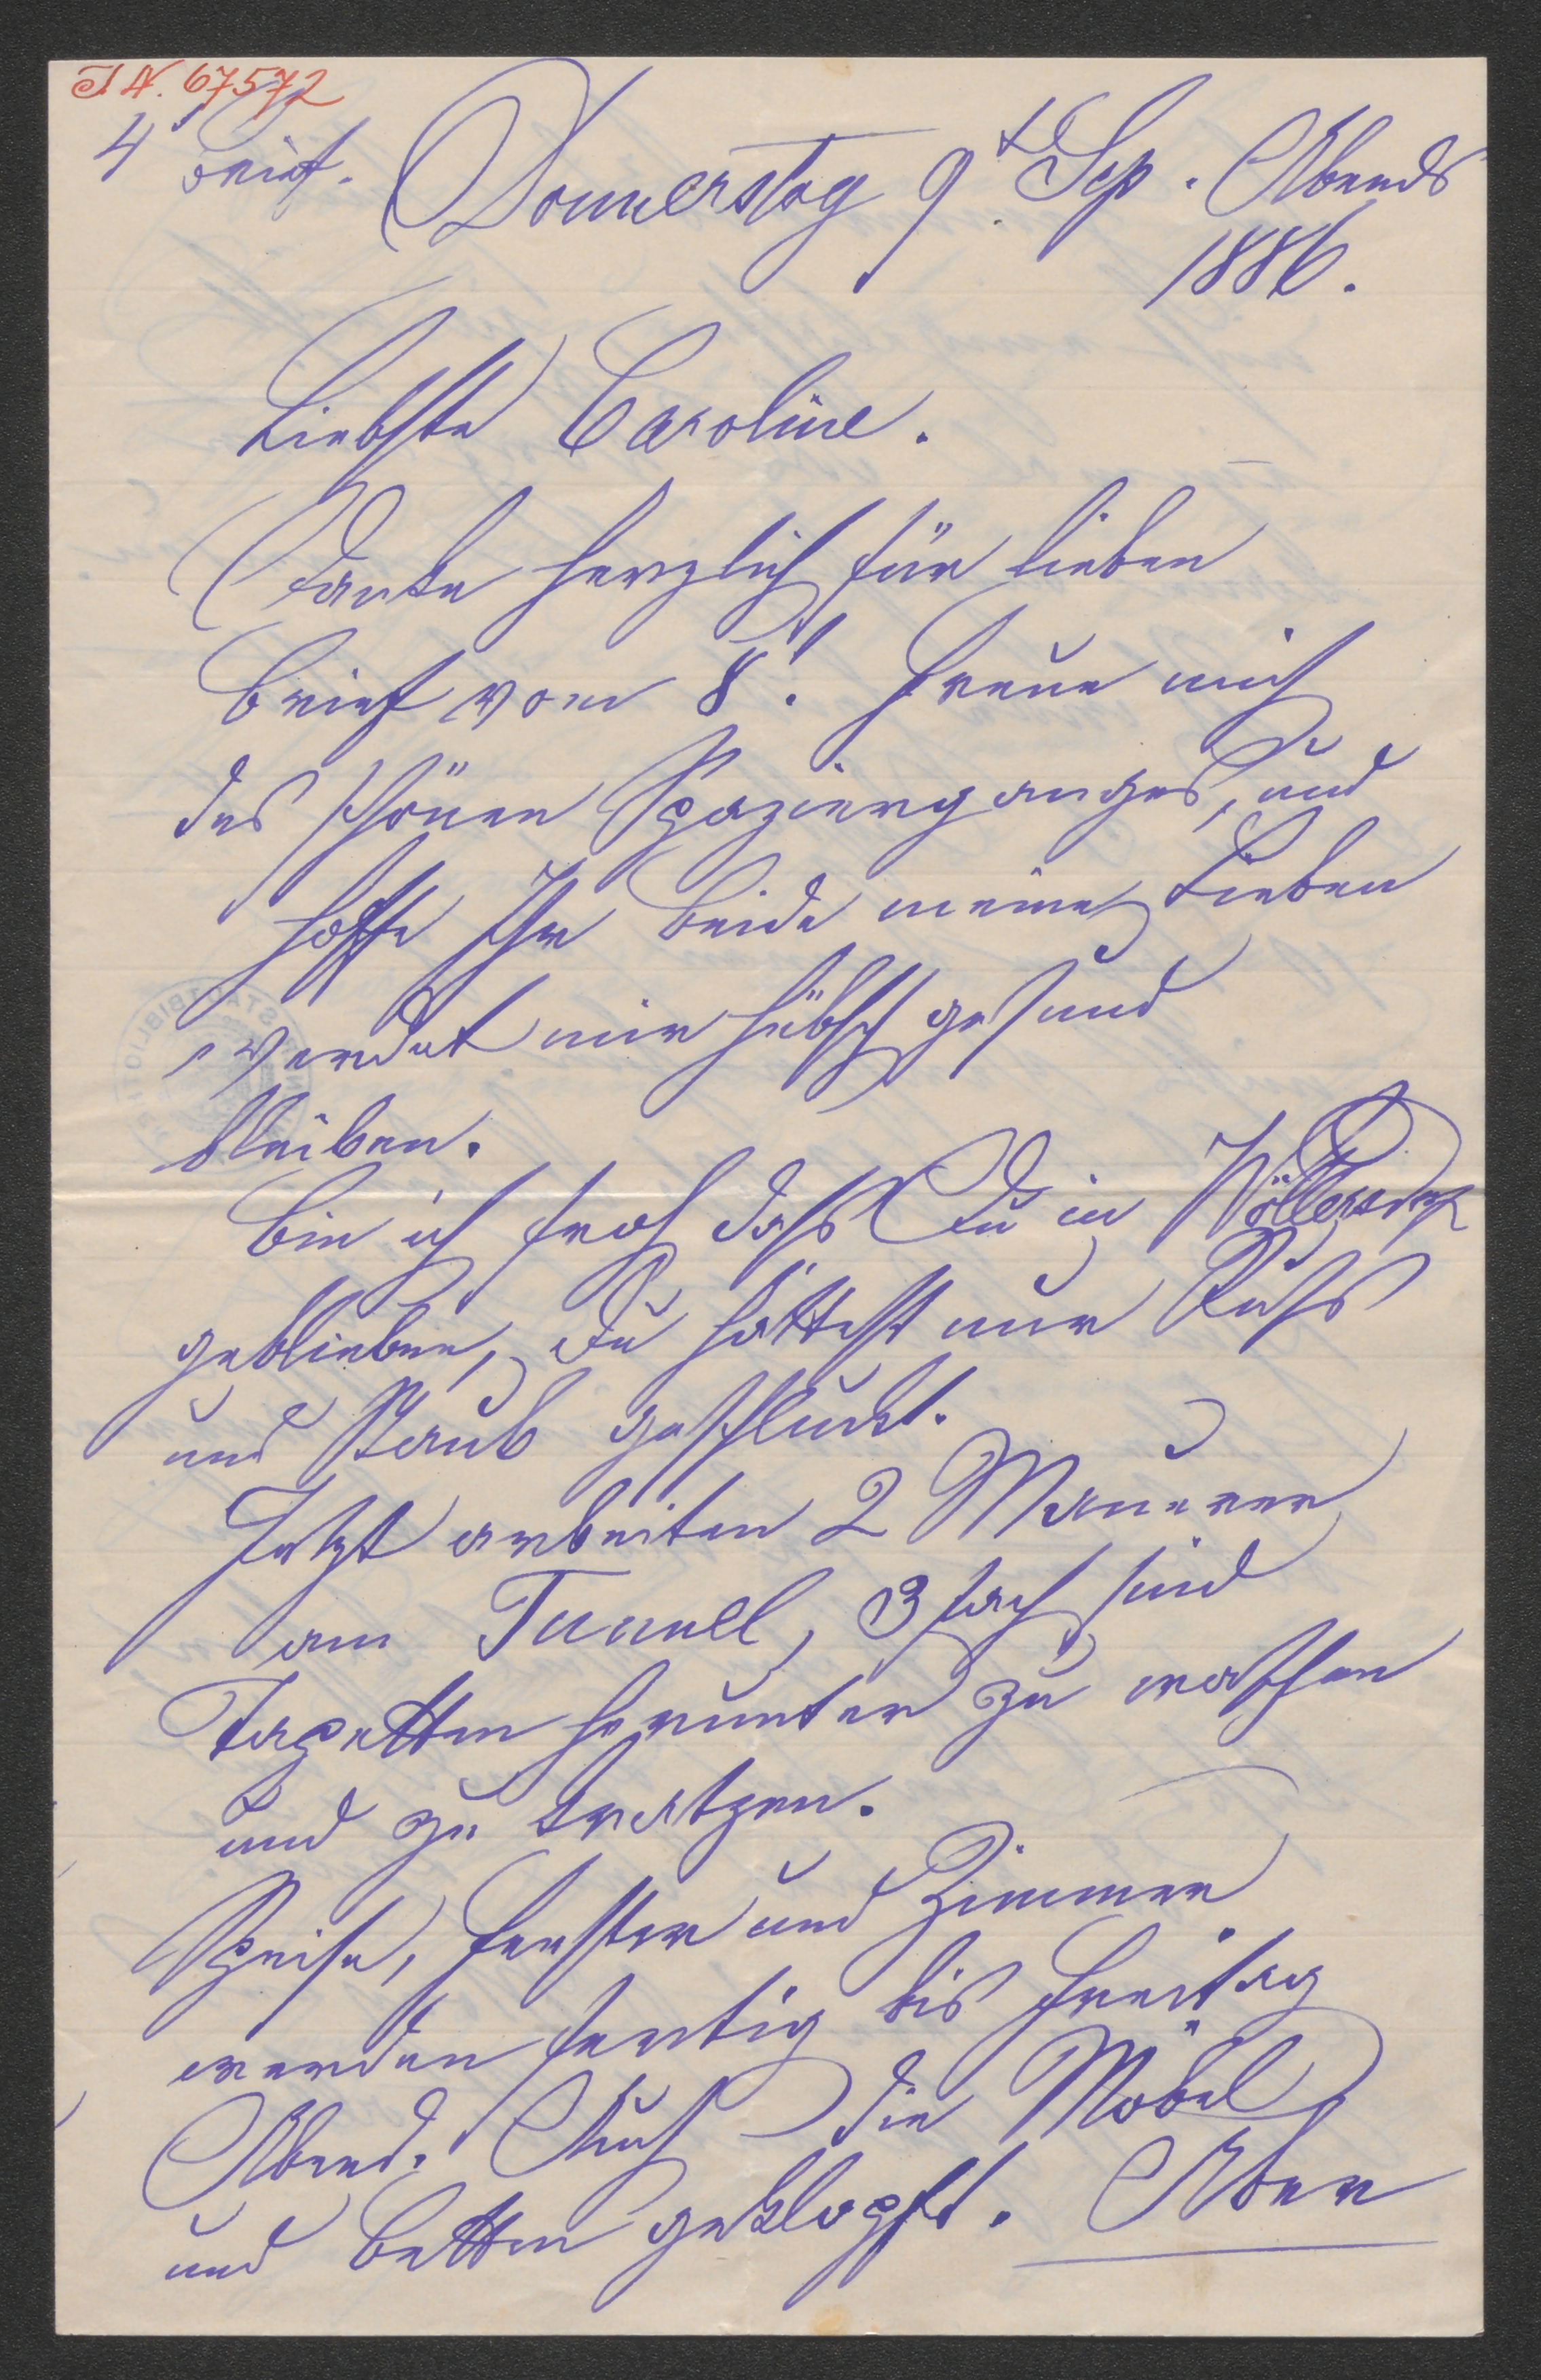 I N. 67572
4 Brief.
Donnerstag 9te Sep. Abends
1886.
Liebste Caroline.
Danke herzlich für lieben
Brief vom 8! Freue mich
des schönen Spazierganges, und
hoffe Ihr beide meine Lieben
werdet mir hübsch gesund
bleiben.
Bin ich froh dass Du in Wöllersdorf
geblieben, Du hättest nur Russ
und Staub geschluckt.
Jetzt arbeiten 2 Maurer
am Tunnel, 3fach sind
Tapetten herunter zu waschen
und zu kratzen.
Speise, Fenster und Zimmer
werden fertig bis Freitag
Abend. Auch die Möbel
und Betten geklopft. Aber